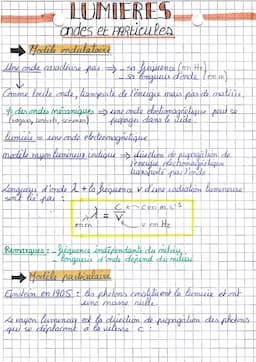 LUMIERES
ondes et PARTICULES
Modèle ondulatoire
Une onde caractérisée par → - sa fréquence (en Hz)
- sa longueur d'onde (en m)
Comme toute onde, transporte de l'énergie mais pas de matière.
≠ des ondes mécaniques ⇒ une onde électromagnétique peut se
(vagues, sismiques) propager dans le vide.
lumière = une onde électromagnétique
modèle rayon lumineux indique → direction de propagation de
l'énergie électromagnétique
transporté par l'onde.
Longueur d'onde λ + la fréquence ν d'une radiation lumineuse
sont lié par :
λ = c/ν
en m
c en m.s⁻¹
ν en Hz
Remarques : - fréquence indépendante du milieu
- longueur d'onde dépend du milieu
Modèle particulaire
Einstein en 1905 : les photons constituent la lumière et ont
une masse nulle.
Le rayon lumineux est la direction de propagation des photons
qui se déplacent à la vitesse c :